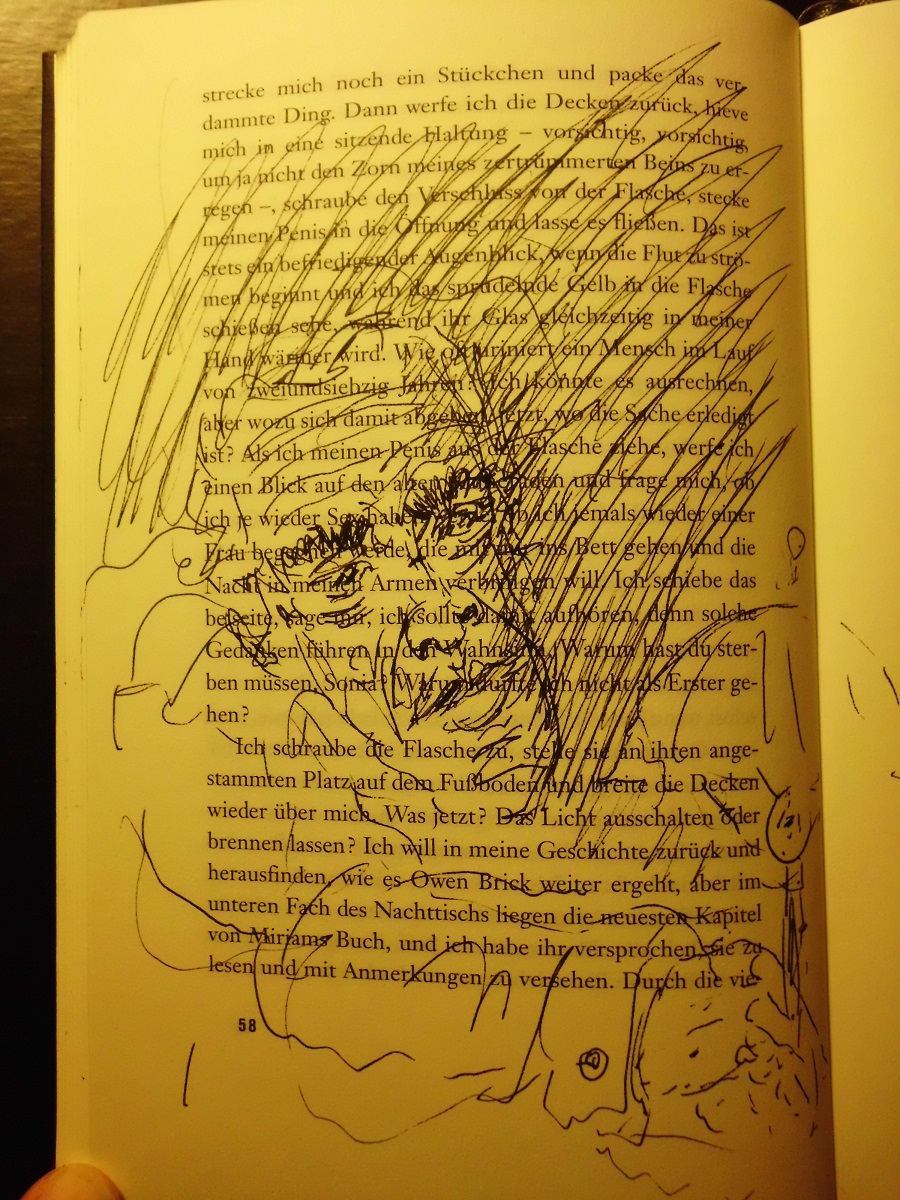 strecke mich noch ein Stückchen und packe das ver-
dammte Ding. Dann werfe ich die Decken zurück, hieve
mich in eine sitzende Haltung – vorsichtig, vorsichtig,
um ja nicht den Zorn meines zertrümmerten Beins zu er-
regen –, schraube den Verschluss von der Flasche, stecke
meinen Penis in die Öffnung und lasse es fließen. Das ist
stets ein befriedigender Augenblick, wenn die Flut zu strö-
men beginnt und ich das sprudelnde Gelb in die Flasche
schießen sehe, während ihr Glas gleichzeitig in meiner
Hand wärmer wird. Wie oft uriniert ein Mensch im Lauf
von zweiundsiebzig Jahren? Ich könnte es ausrechnen,
aber wozu sich damit abgeben, jetzt, wo die Sache erledigt
ist? Als ich meinen Penis aus der Flasche ziehe, werfe ich
einen Blick auf den alten Kameraden und frage mich, ob
ich je wieder Sex haben ob ich jemals wieder einer
Frau begegnen werde, die mit mir ins Bett gehen und die
Nacht in meinen Armen verbringen will. Ich schiebe das
beiseite, sage mir, ich sollte damit aufhören, denn solche
Gedanken führen in den Wahnsinn. Warum hast du ster-
ben müssen, Sonia? Warum durfte ich nicht als Erster ge-
hen?
Ich schraube die Flasche zu, stelle sie an ihren ange-
stammten Platz auf dem Fußboden und breite die Decken
wieder über mich. Was jetzt? Das Licht ausschalten oder
brennen lassen? Ich will in meine Geschichte zurück und
herausfinden, wie es Owen Brick weiter ergeht, aber im
unteren Fach des Nachttischs liegen die neuesten Kapitel
von Miriams Buch, und ich habe ihr versprochen, sie zu
lesen und mit Anmerkungen zu versehen. Durch die vie-
58